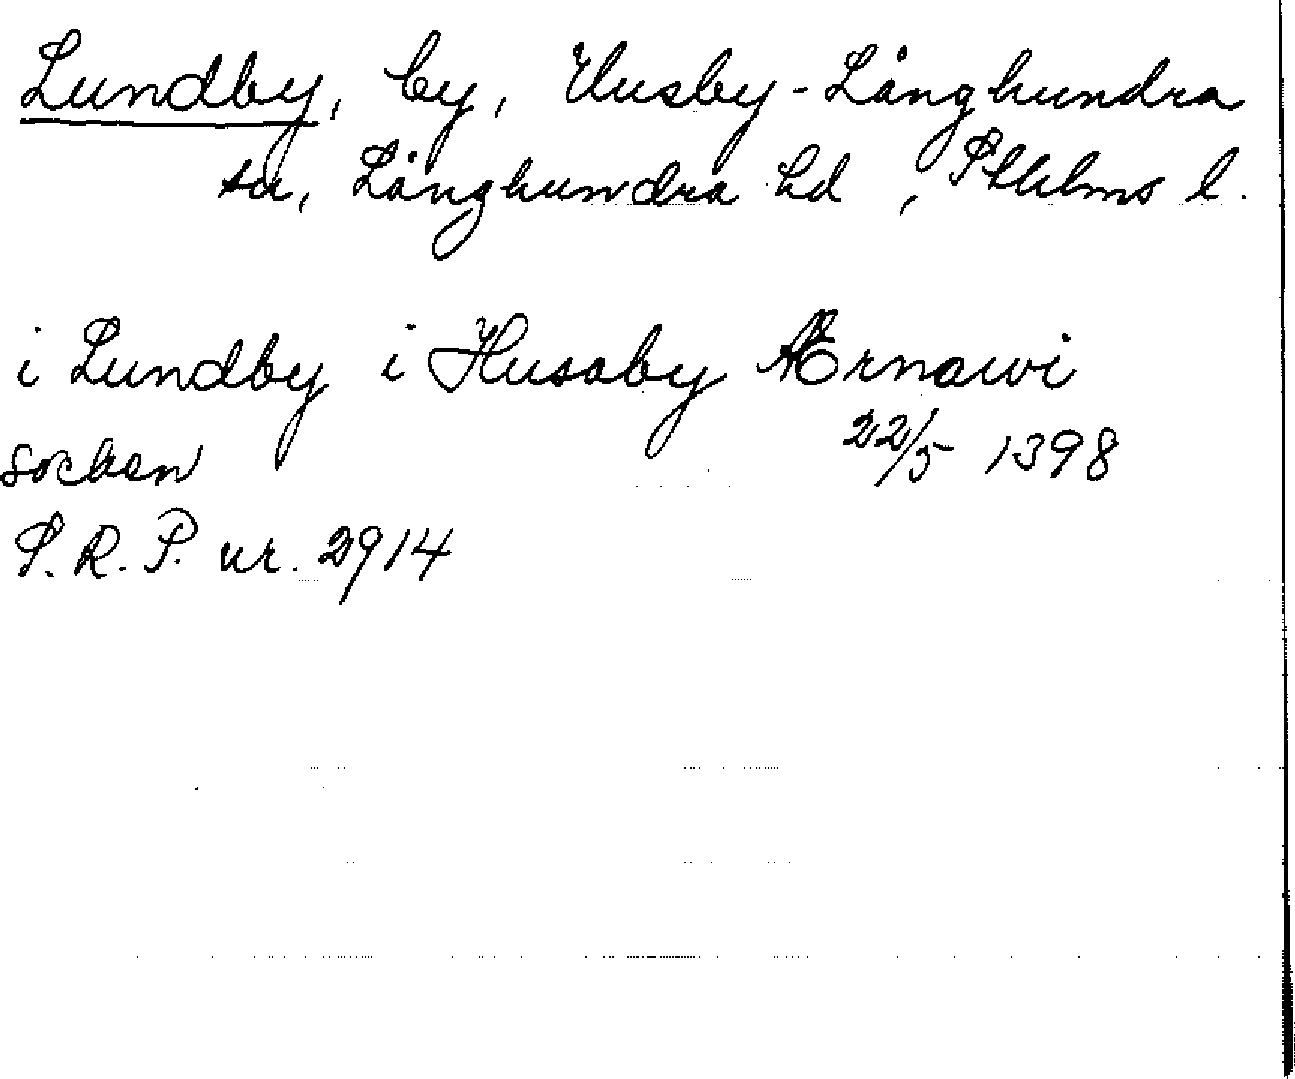 Lundby, by, Husby-Långhundra
sn, Långhundra hd, Sthlms l.
i Lundby i Husaby Ærnawi
socken 22/5 1398
S.R.P. nr. 2914